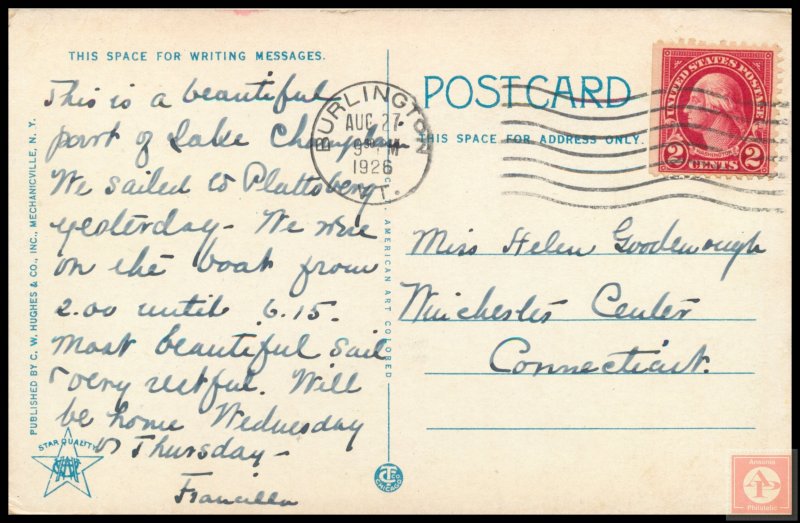 THIS SPACE FOR WRITING MESSAGES.
This is a beautiful
part of Lake Champlain
We sailed to Plattsberg
yesterday - We were
on the boat from
2.00 until 6.15.
Most beautiful sail
& very restful. Will
be home Wednesday
or Thursday -
Francilla
PUBLISHED BY C. W. HUGHES & CO., INC., MECHANICVILLE, N. Y.
STAR QUALITY
AMERICAN ART COLORED
C.T. CO. CHICAGO
BURLINGTON
AUG 27
1926
VT.
POSTCARD
THIS SPACE FOR ADDRESS ONLY.
UNITED STATES POSTAGE
WASHINGTON
2 CENTS 2
Miss Helen Goodenough
Winchester Center
Connecticut.
Ansonia
AP
Philatelic